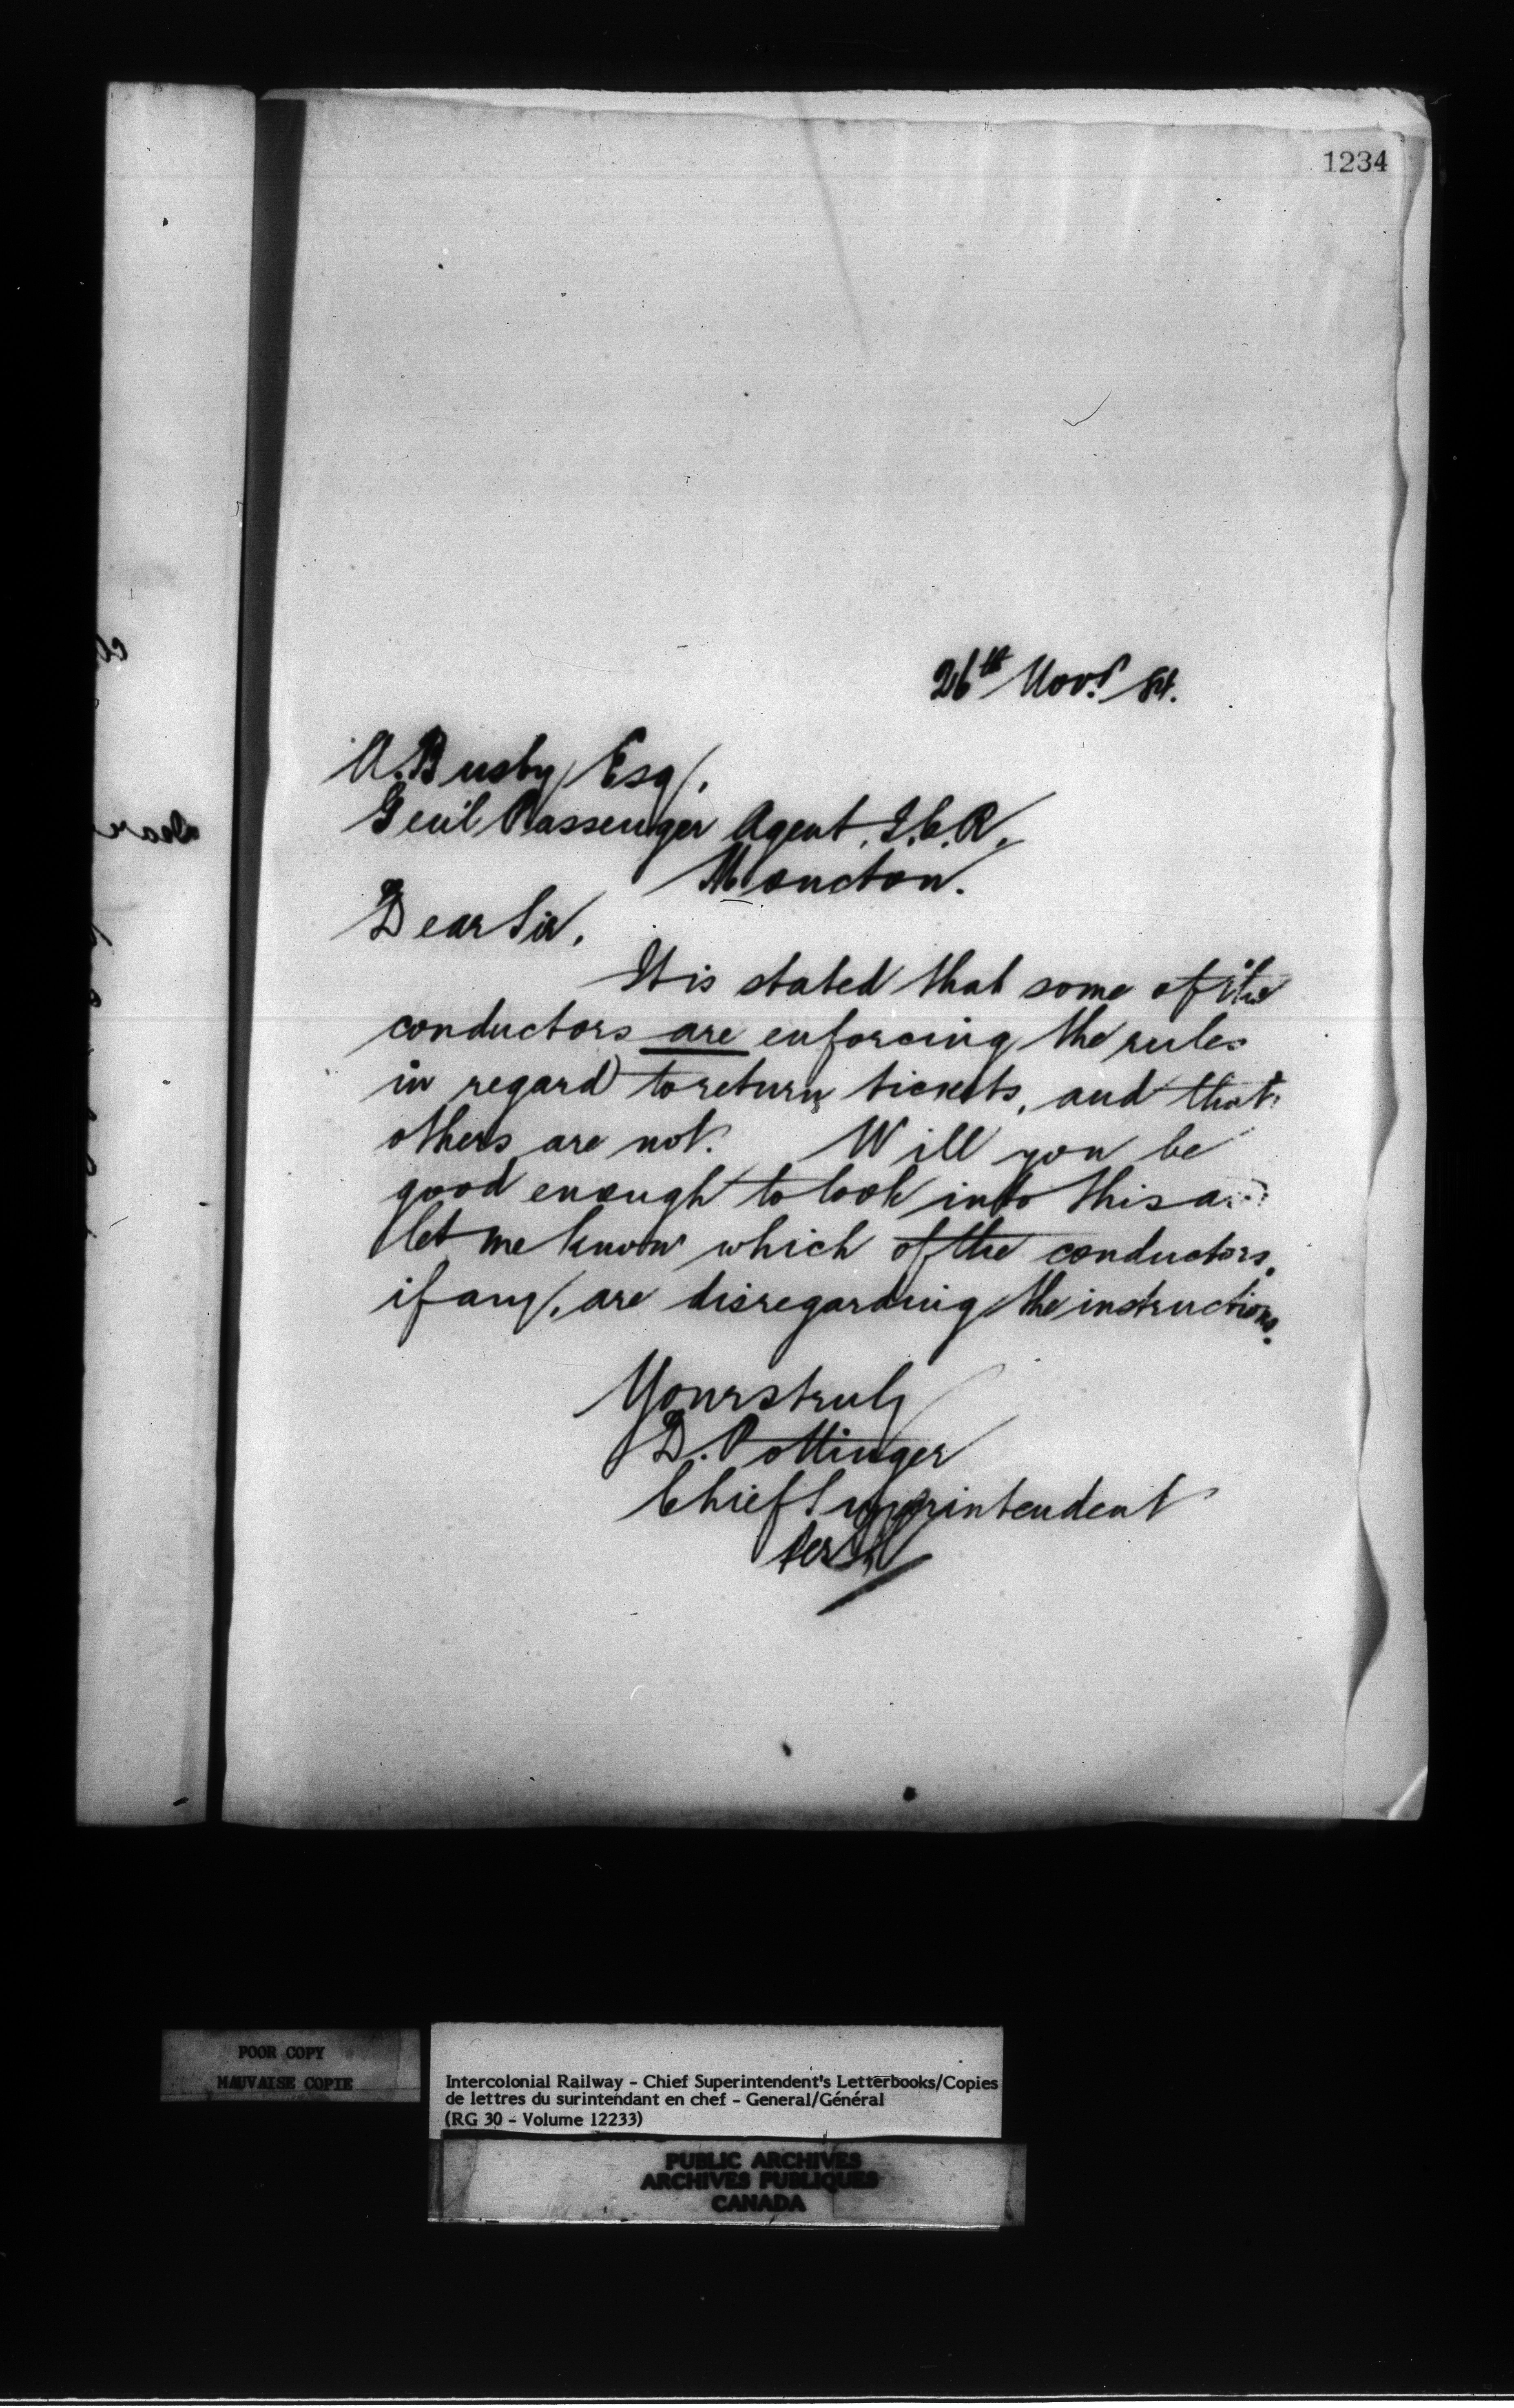 1234
26th Novr 84.
A. Busby Esq.
Genl Passenger Agent, I.C.R.
Moncton.
Dear Sir,
It is stated that some of the
conductors are enforcing the rules
in regard to return tickets, and that
others are not. Will you be
good enough to look into this
let me know which of the conductors,
if any, are disregarding the instructions.
Yours truly
D. Pottinger
Chief Superintendent
Per
POOR COPY
MAUVAISE COPIE
Intercolonial Railway - Chief Superintendent's Letterbooks/Copies
de lettres du surintendant en chef - General/Général
(RG 30 - Volume 12233)
PUBLIC ARCHIVES
ARCHIVES PUBLIQUES
CANADA